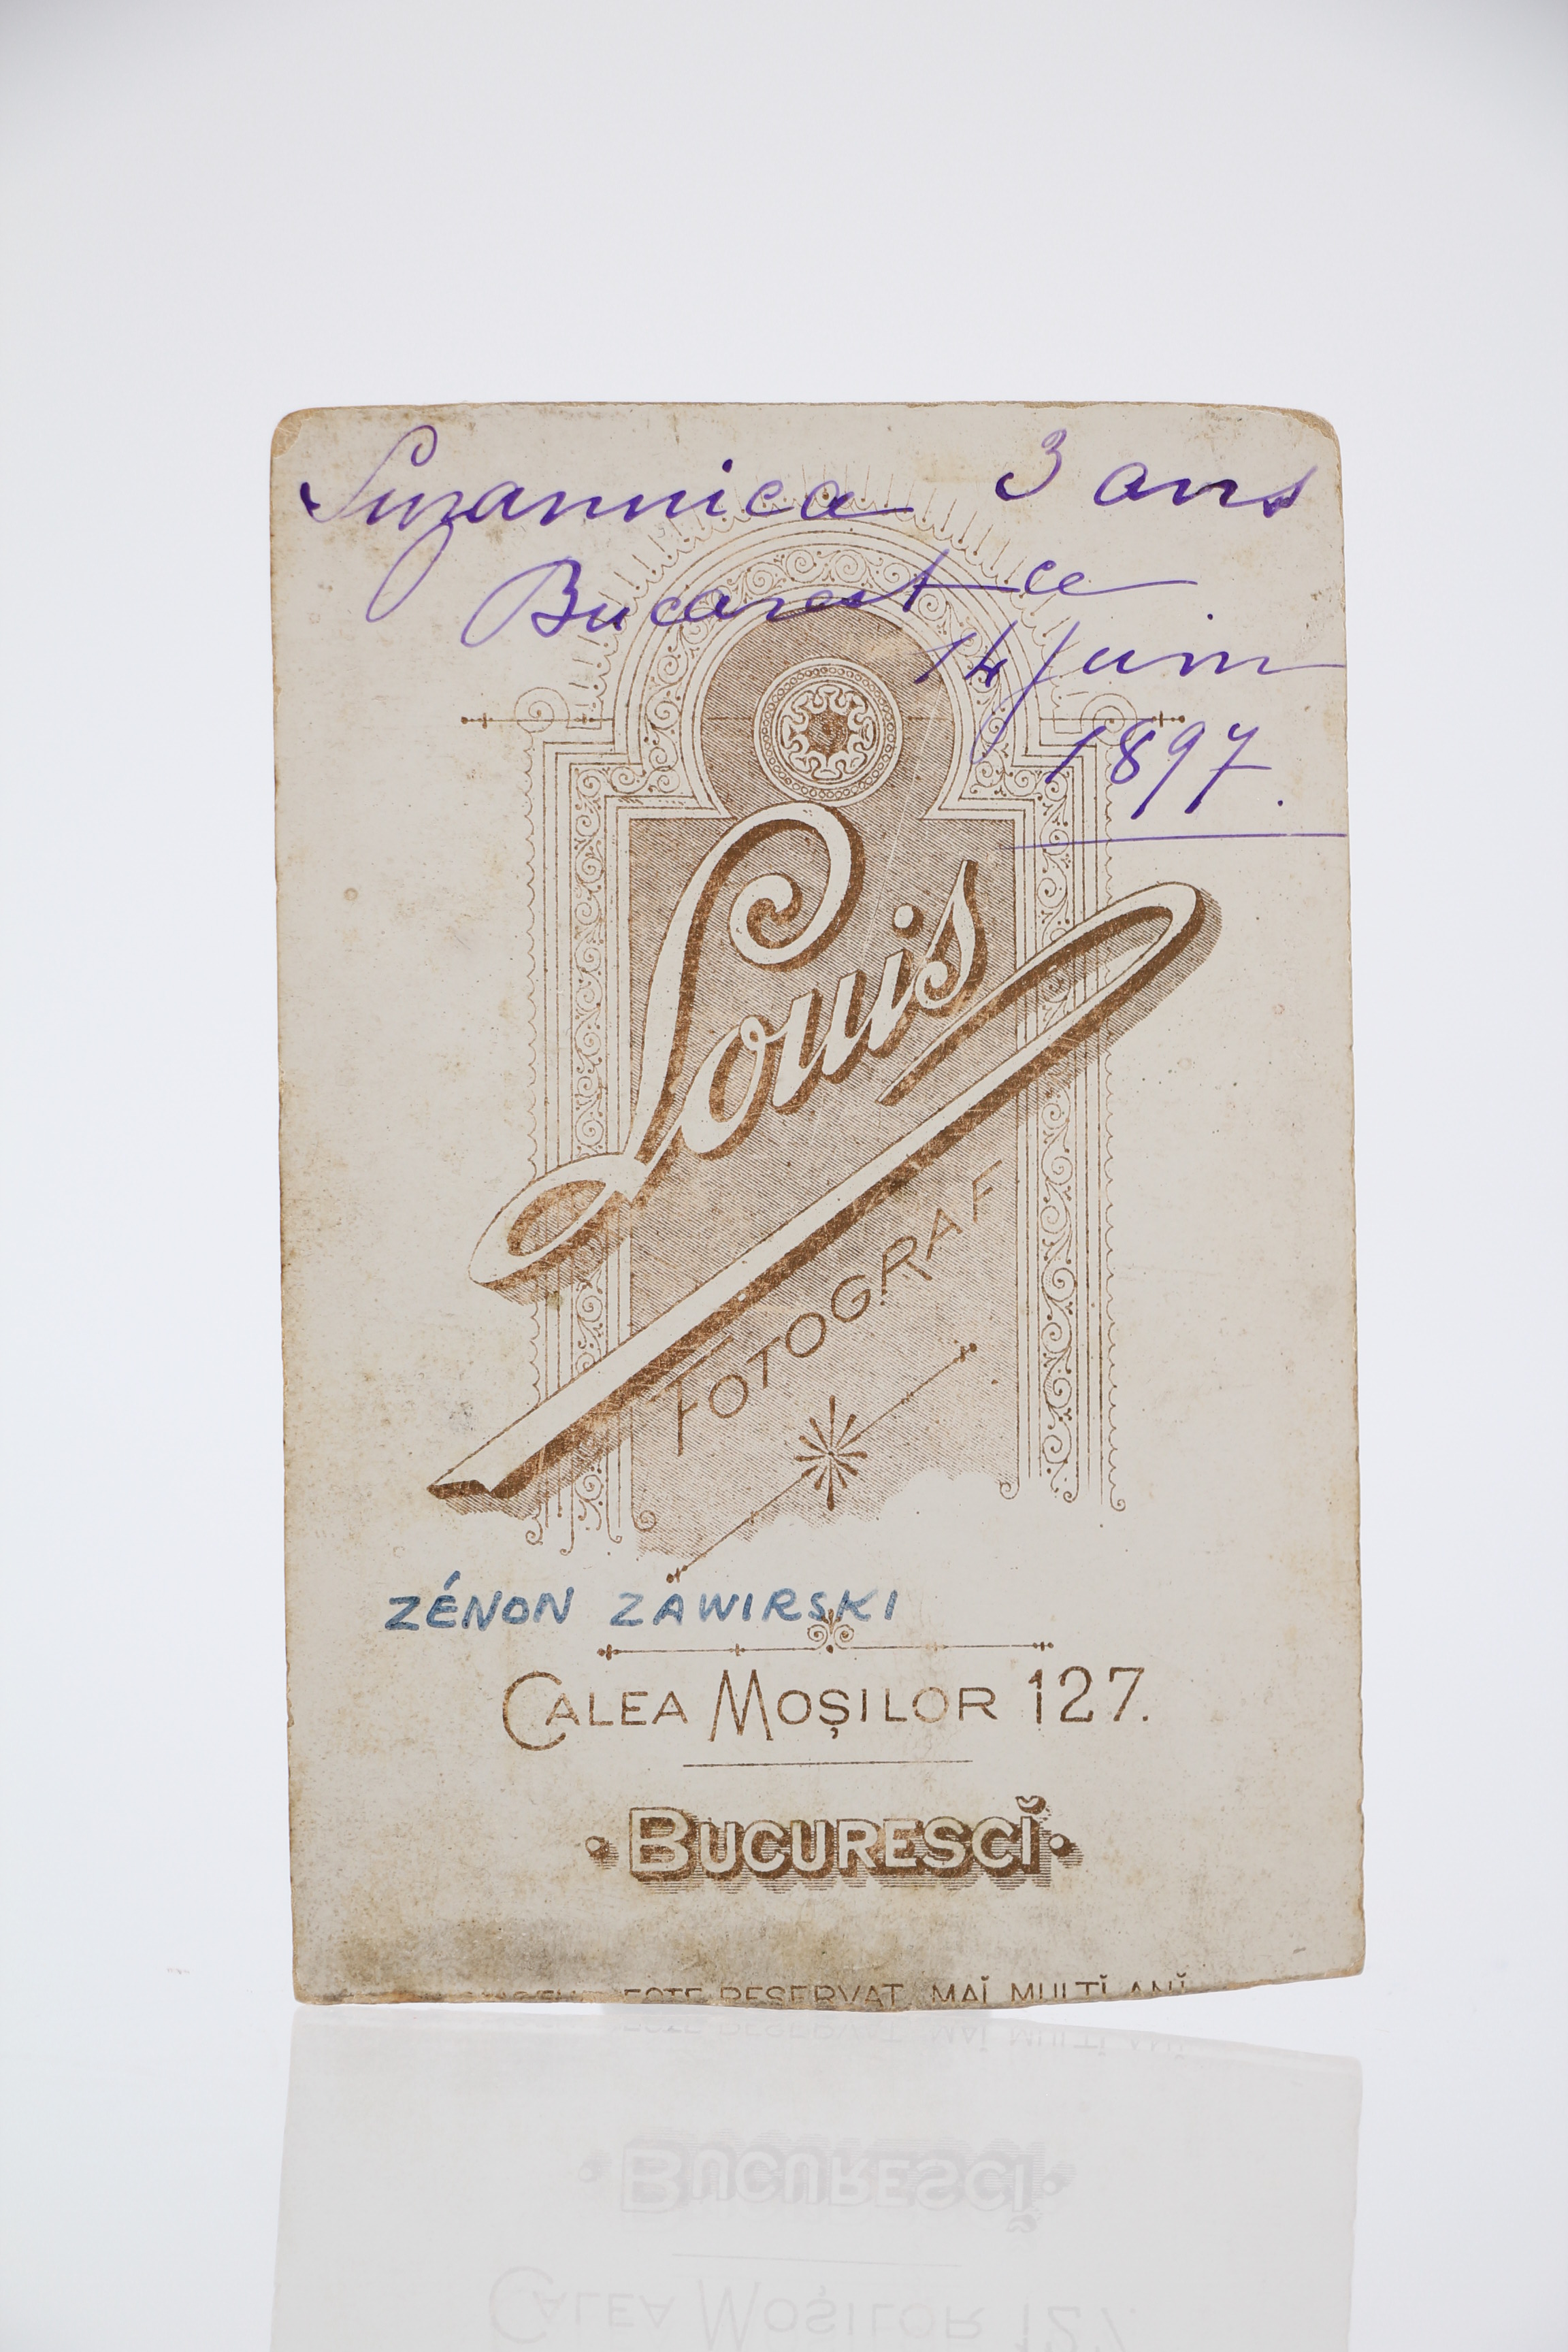 Suzannica 3 ans
Bucarest ce
14 juin
1897.
Louis
FOTOGRAF
ZÉNON ZAWIRSKI
CALEA MOȘILOR 127.
BUCURESCĬ
ESTE RESERVAT MAĬ MULTĬ ANĬ